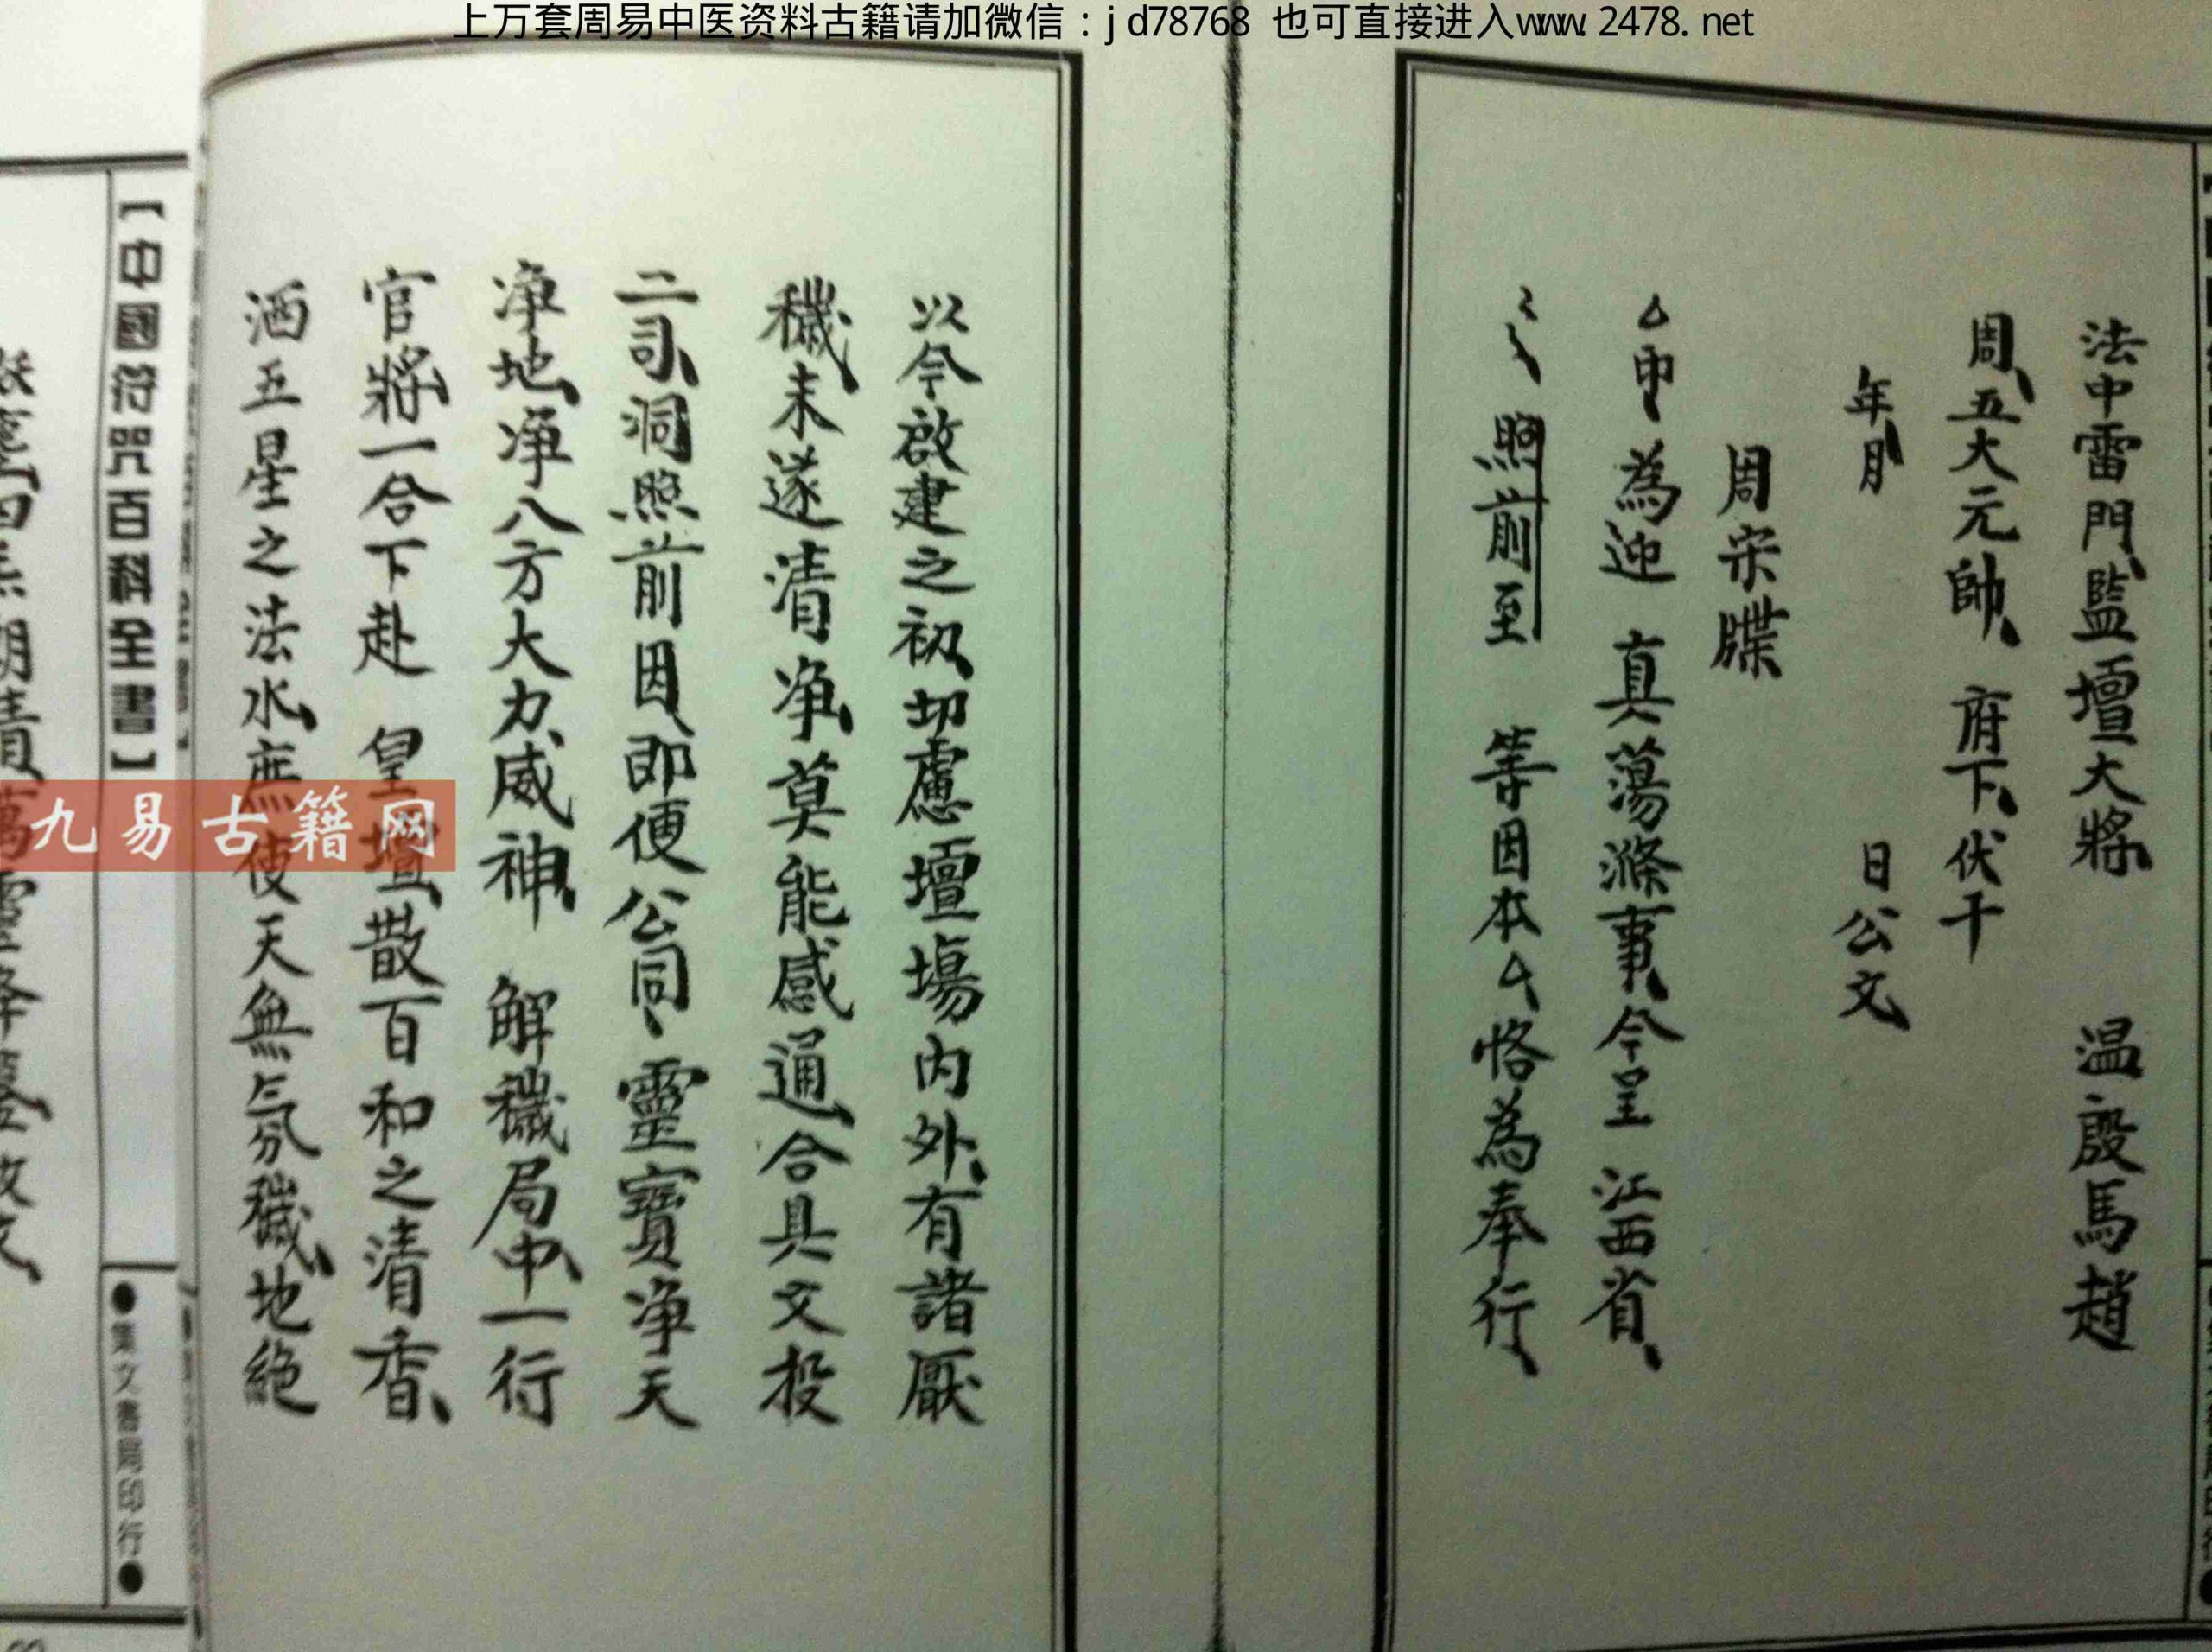 上万套周易中医资料古籍请加微信：jd78768 也可直接进入www.2478.net
法中雷門監壇大將 温殷馬趙
周五大元帥 府下伏干
年月 日公文
周宋牒
申為迎 真蕩滌事今呈 江西省
照前至 等因本 恪為奉行
以今啟建之初切慮壇場内外有諸厭
穢未遂清净莫能感通合具文投
二司洞照前因即便公同 靈寶净天
净地净八方大力威神 解穢局中一行
官將一合下赴 皇壇散百和之清香
洒五星之法水庶使天無氛穢地絶
【中國符咒百科全書】
●集文書局印行●
九易古籍网